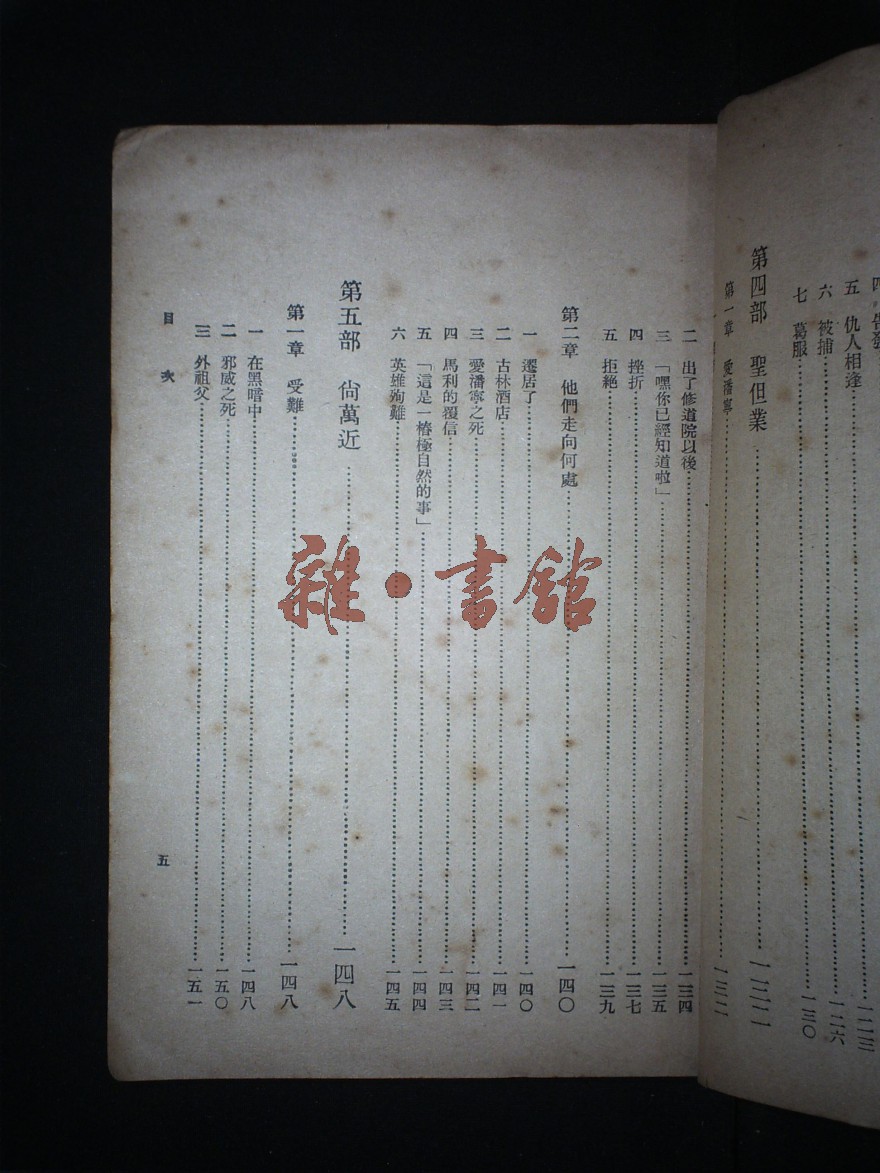 五 仇人相逢
六 被捕 一二六
七 葛服 一三〇
第四部 聖但業
第一章 愛潘寧
二 出了修道院以後 一三四
三 「嘿你已經知道啦」 一三五
四 挫折 一三七
五 拒絕 一三九
第二章 他們走向何處 一四〇
一 遷居了 一四〇
二 古林酒店 一四一
三 愛潘寧之死 一四二
四 馬利的覆信 一四三
五 「這是一樁極自然的事」 一四四
六 英雄殉難 一四五
第五部 尙萬近 一四八
第一章 受難 一四八
一 在黑暗中 一四八
二 邪威之死 一五〇
三 外祖父 一五一
目次
五
雜·書館